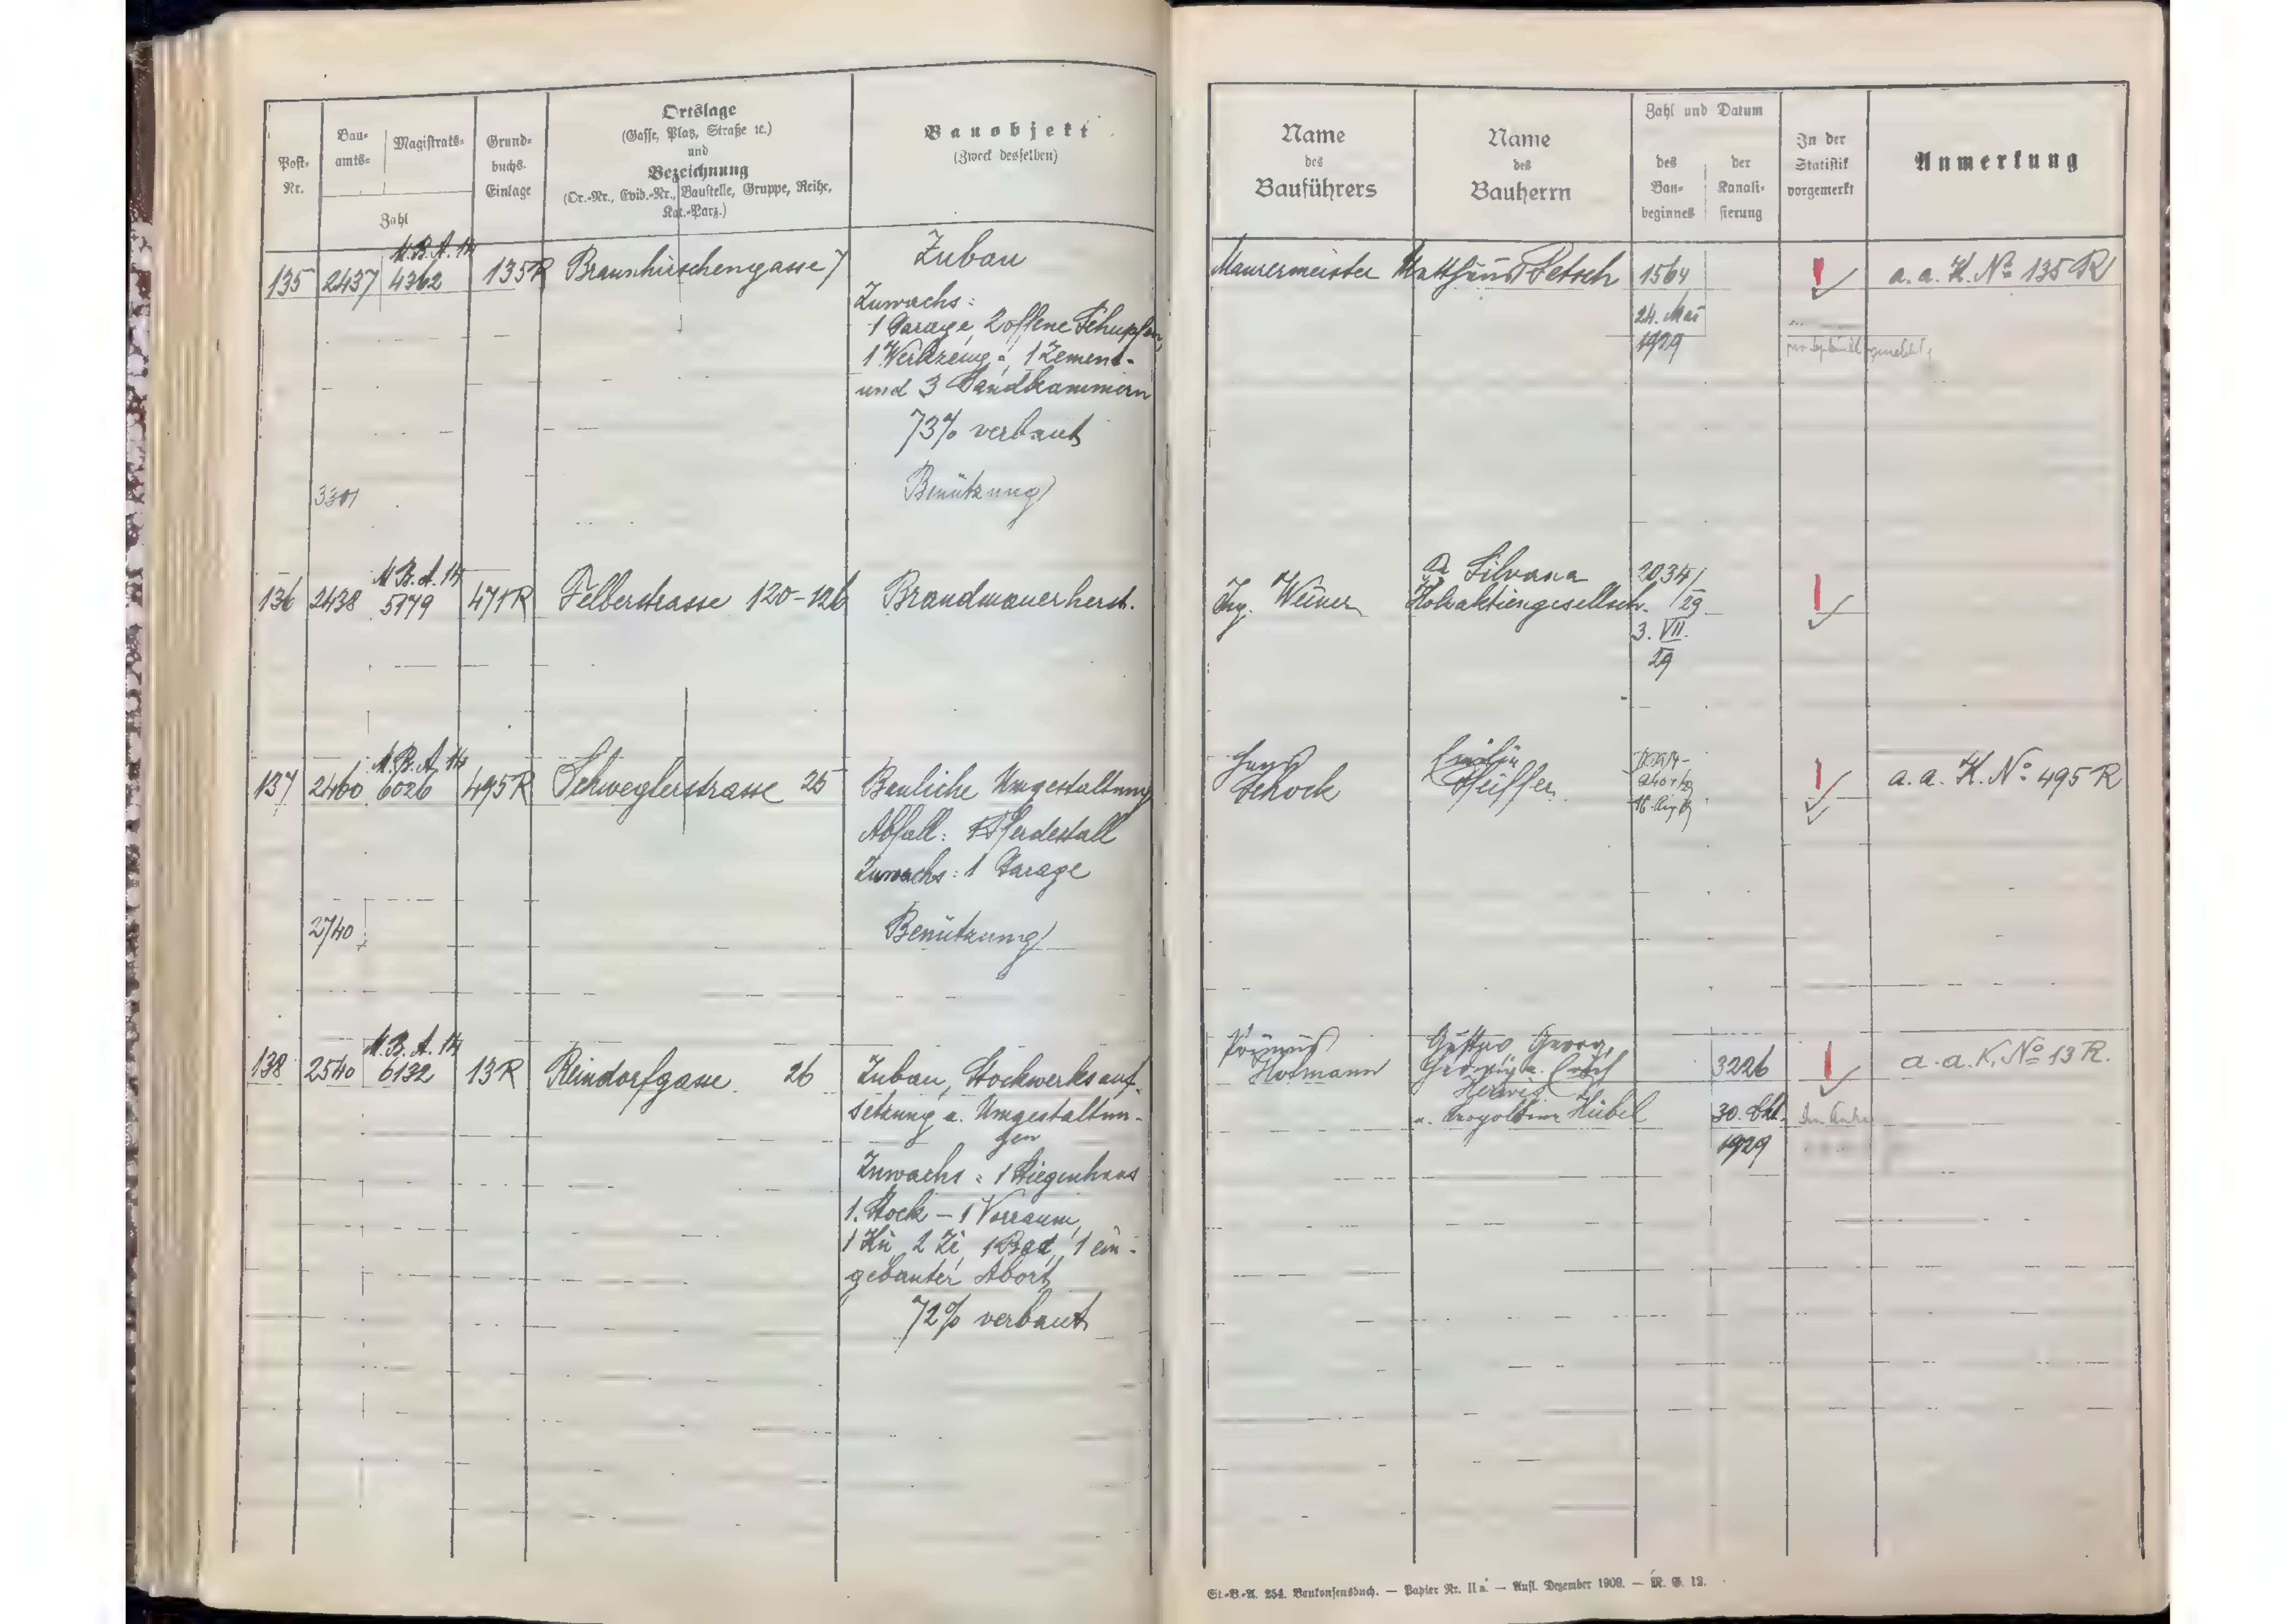 Post-
Nr.
Bau-
amts-
Magistrats-
Zahl
Grund-
buchs-
Einlage
Ortslage
(Gasse, Platz, Straße ꝛc.)
und
Bezeichnung
(Or.-Nr., Evid.-Nr., Baustelle, Gruppe, Reihe,
Kat.-Parz.)
Bauobjekt
(Zweck desselben)
Name
des
Bauführers
Name
des
Bauherrn
Zahl und Datum
des
Bau-
beginnes
der
Kanali-
sierung
In der
Statistik
vorgemerkt
Anmerkung
M.B.A. 14
135 2437 4362 135R Braunhirschengasse 7 Zubau
Zuwachs:
1 Garage, 2 offene Schupfen,
1 Werkzeug-, 1 Zement-
und 3 Sandkammern
73% verbaut
3301 Benützung
Maurermeister Matthäus Petsch 1564 a.a. K. No 135 R
24. Mai
1929
M.B.A. 14
136 2438 5179 471R Felberstrasse 120-126 Brandmauerherst.
Silvana
Ing. Weiner Holzaktiengesellsch. 2034/
/29
3. VII.
29
M.B.A. 14
137 2460 6026 495R Schweglerstrasse 25 Bauliche Umgestaltung
Abfall: 1 Pferdestall
Zuwachs: 1 Garage
2740 Benützung
Schock Pfeiffer a.a. K. No 495 R
M.B.A. 14
138 2540 6132 13R Reindorfgasse 26 Zubau, Stockwerksauf-
setzung u. Umgestaltun-
gen
Zuwachs: 1 Stiegenhaus
1. Stock - 1 Vorraum,
1 Kü, 2 Zi, 1 Bad, 1 ein-
gebauter Abort
72% verbaut
Hofmann Gustav Georg,
Hedwig
u. Leopoldine Hübel
3226
30. Okt.
1929
a.a. K. No 13 R.
St.-B.-A. 254. Baukonsensbuch. — Papier Nr. IIa. — Aufl. Dezember 1908. — M. G. 12.